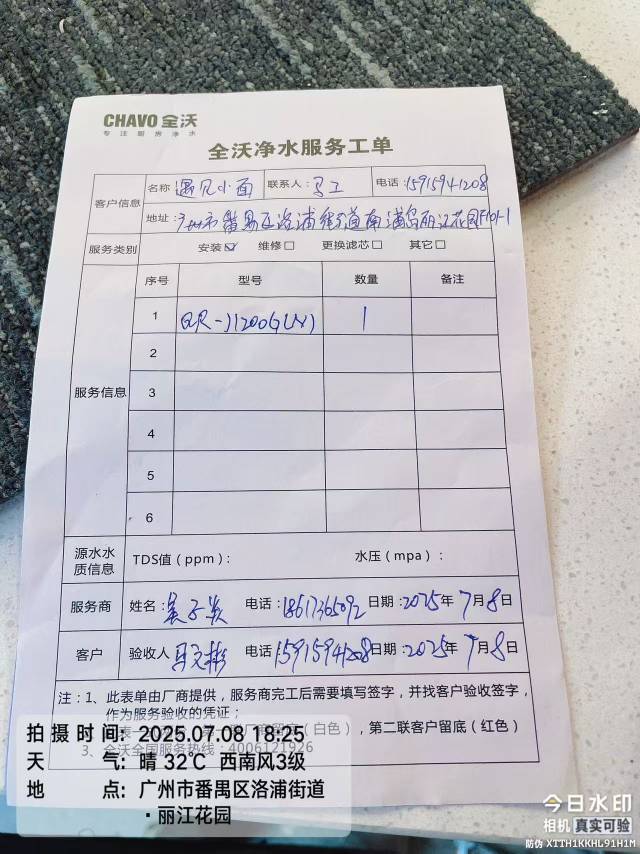 CHAVO 全沃
专注厨房净水
全沃净水服务工单
客户信息 名称 遇见小面 联系人: 马工 电话: 15915941208
地址: 广州市番禺区洛浦街道南浦岛丽江花园F101-1
服务类别 安装☑ 维修☐ 更换滤芯☐ 其它☐
服务信息 序号 型号 数量 备注
1 1
2
3
4
5
6
源水水质信息 TDS值(ppm): 水压(mpa):
服务商 姓名: 电话: 日期: 2025年7月8日
客户 验收人 马文彬 电话 15915941208 日期: 2025年7月8日
注: 1、此表单由厂商提供,服务商完工后需要填写签字,并找客户验收签字,
作为服务验收的凭证;
(白色),第二联客户留底(红色)
3、全沃全国服务热线: 4006121926
拍摄时间: 2025.07.08 18:25
天气: 晴 32℃ 西南风3级
地点: 广州市番禺区洛浦街道
·丽江花园
今日水印
相机 真实可验
防伪 XTTH1KKHL91H1M